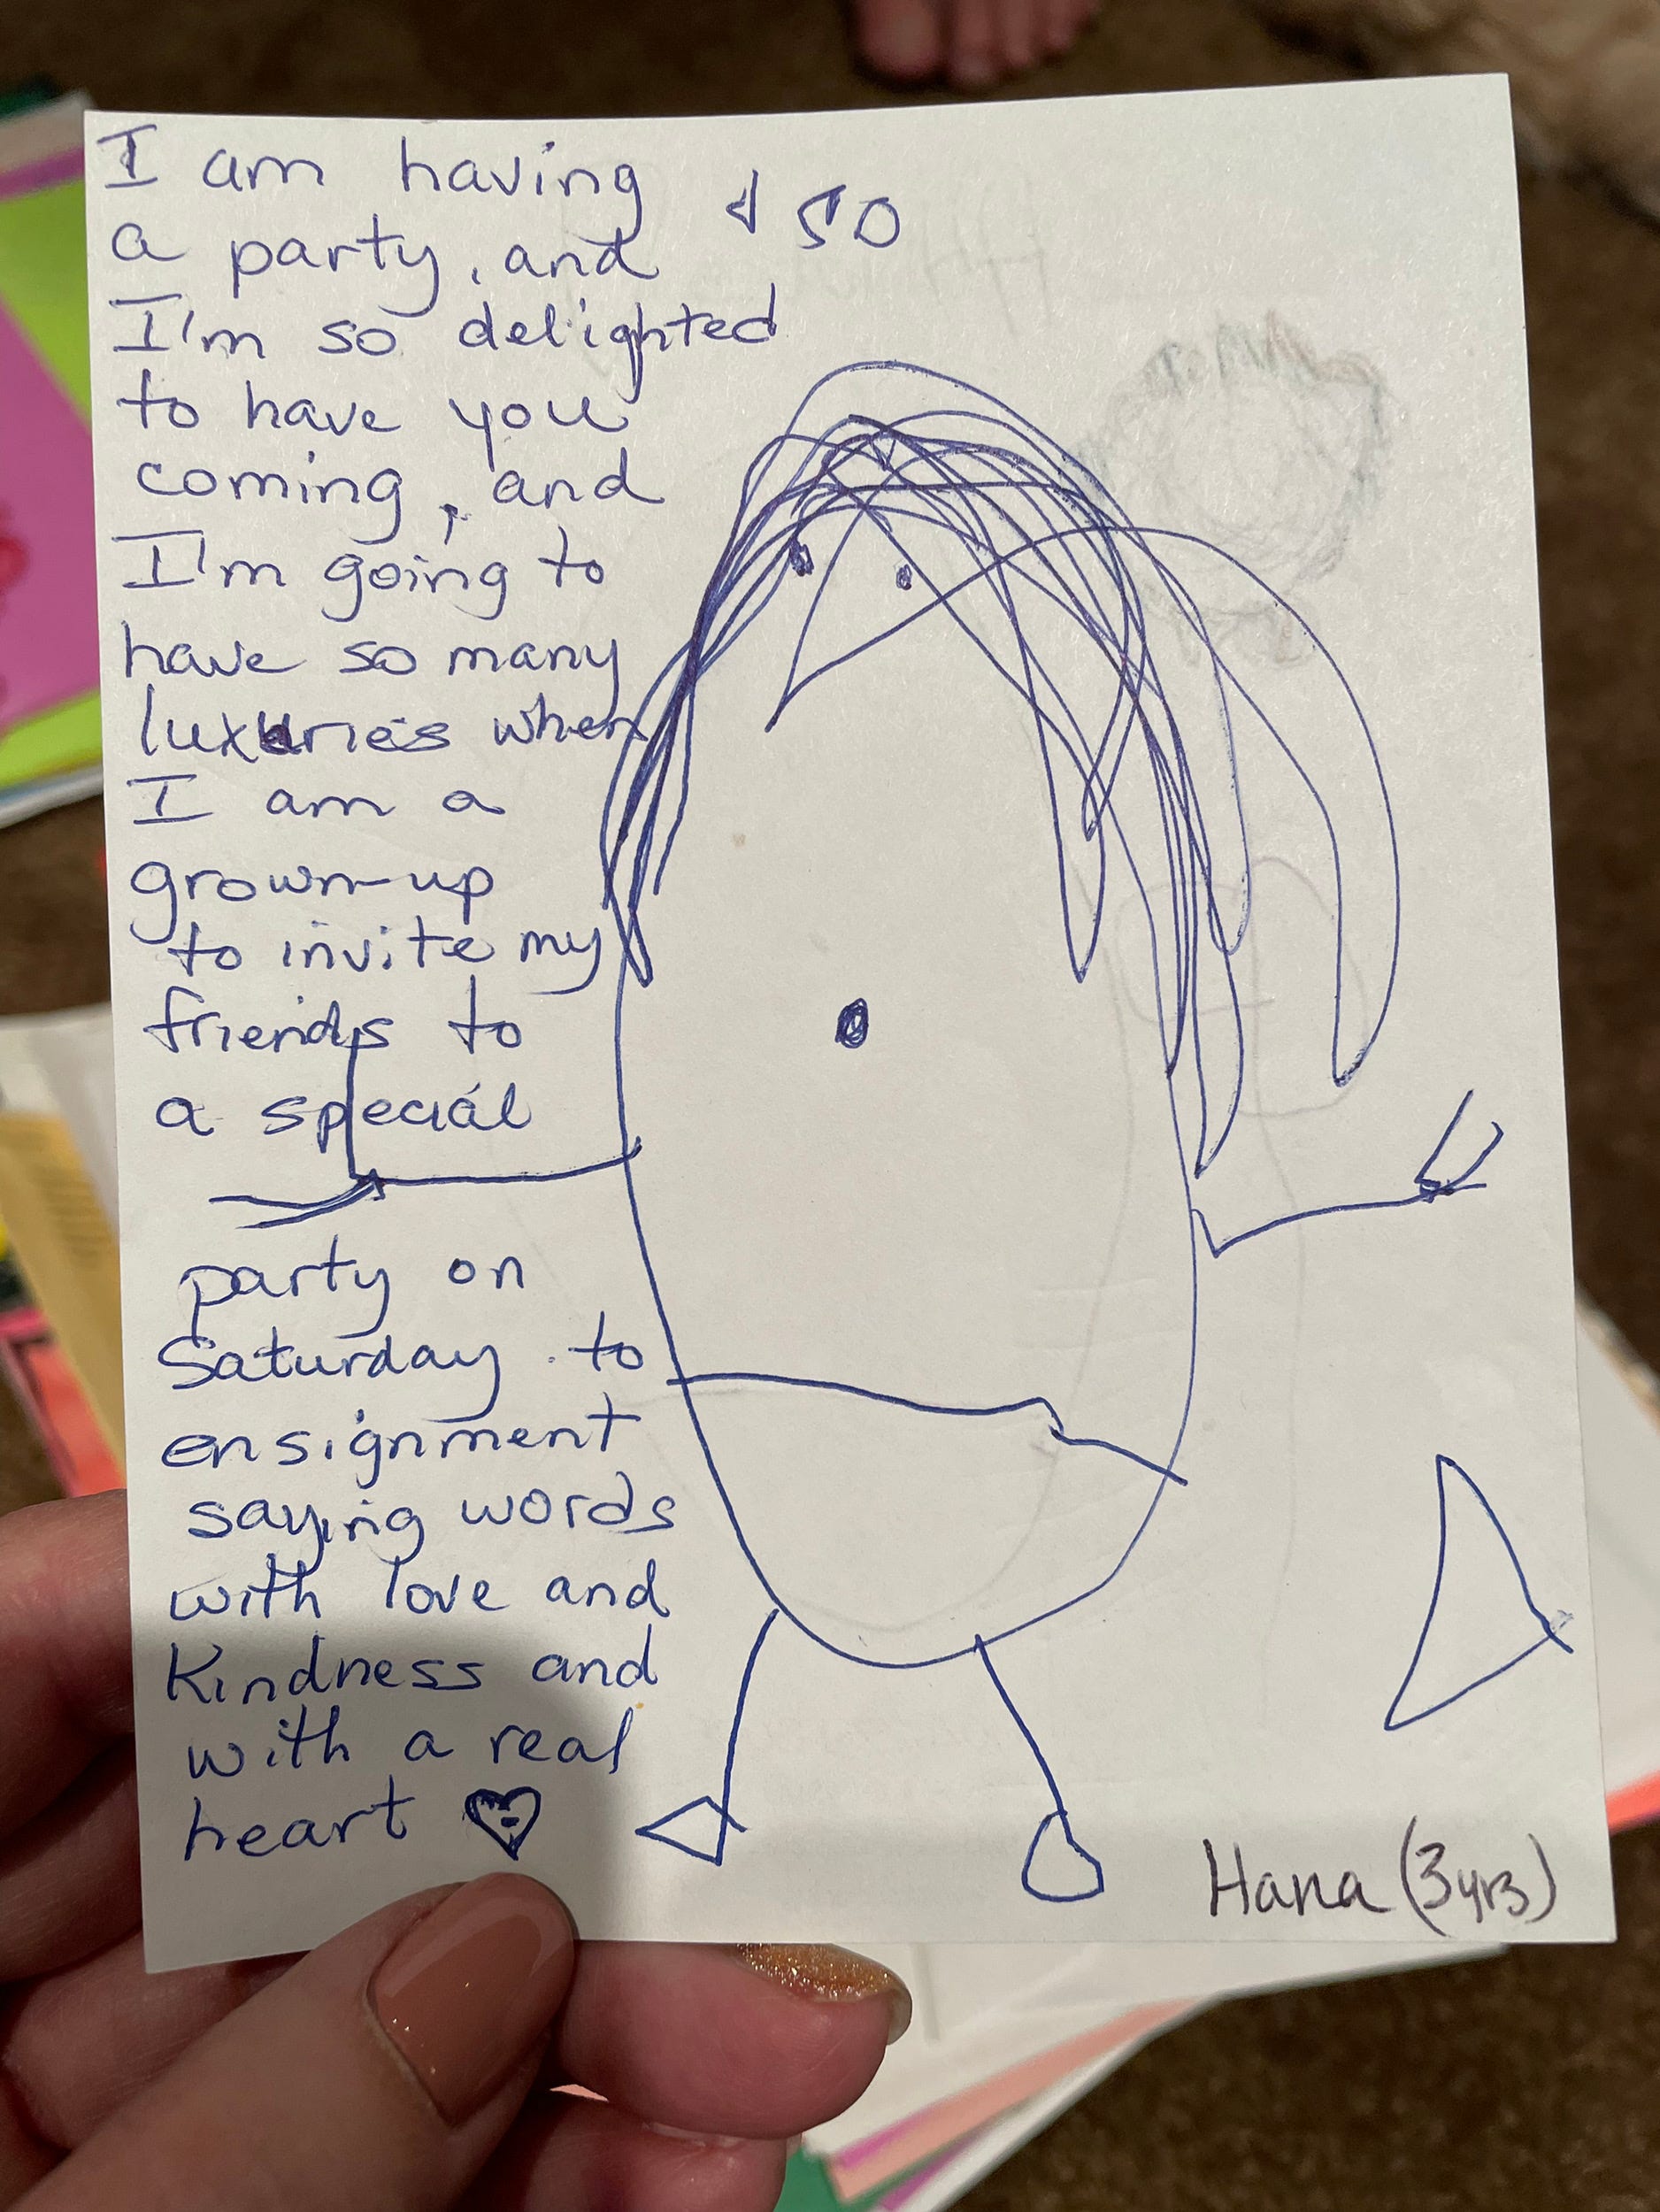 I am having
a party, and
I'm so delighted
to have you
coming, and
I'm going to
have so many
luxuries when
I am a
grown-up
to invite my
friends to
a special
party on
Saturday to
ensignment
saying words
with love and
Kindness and
with a real
heart
Hana (3yrs)